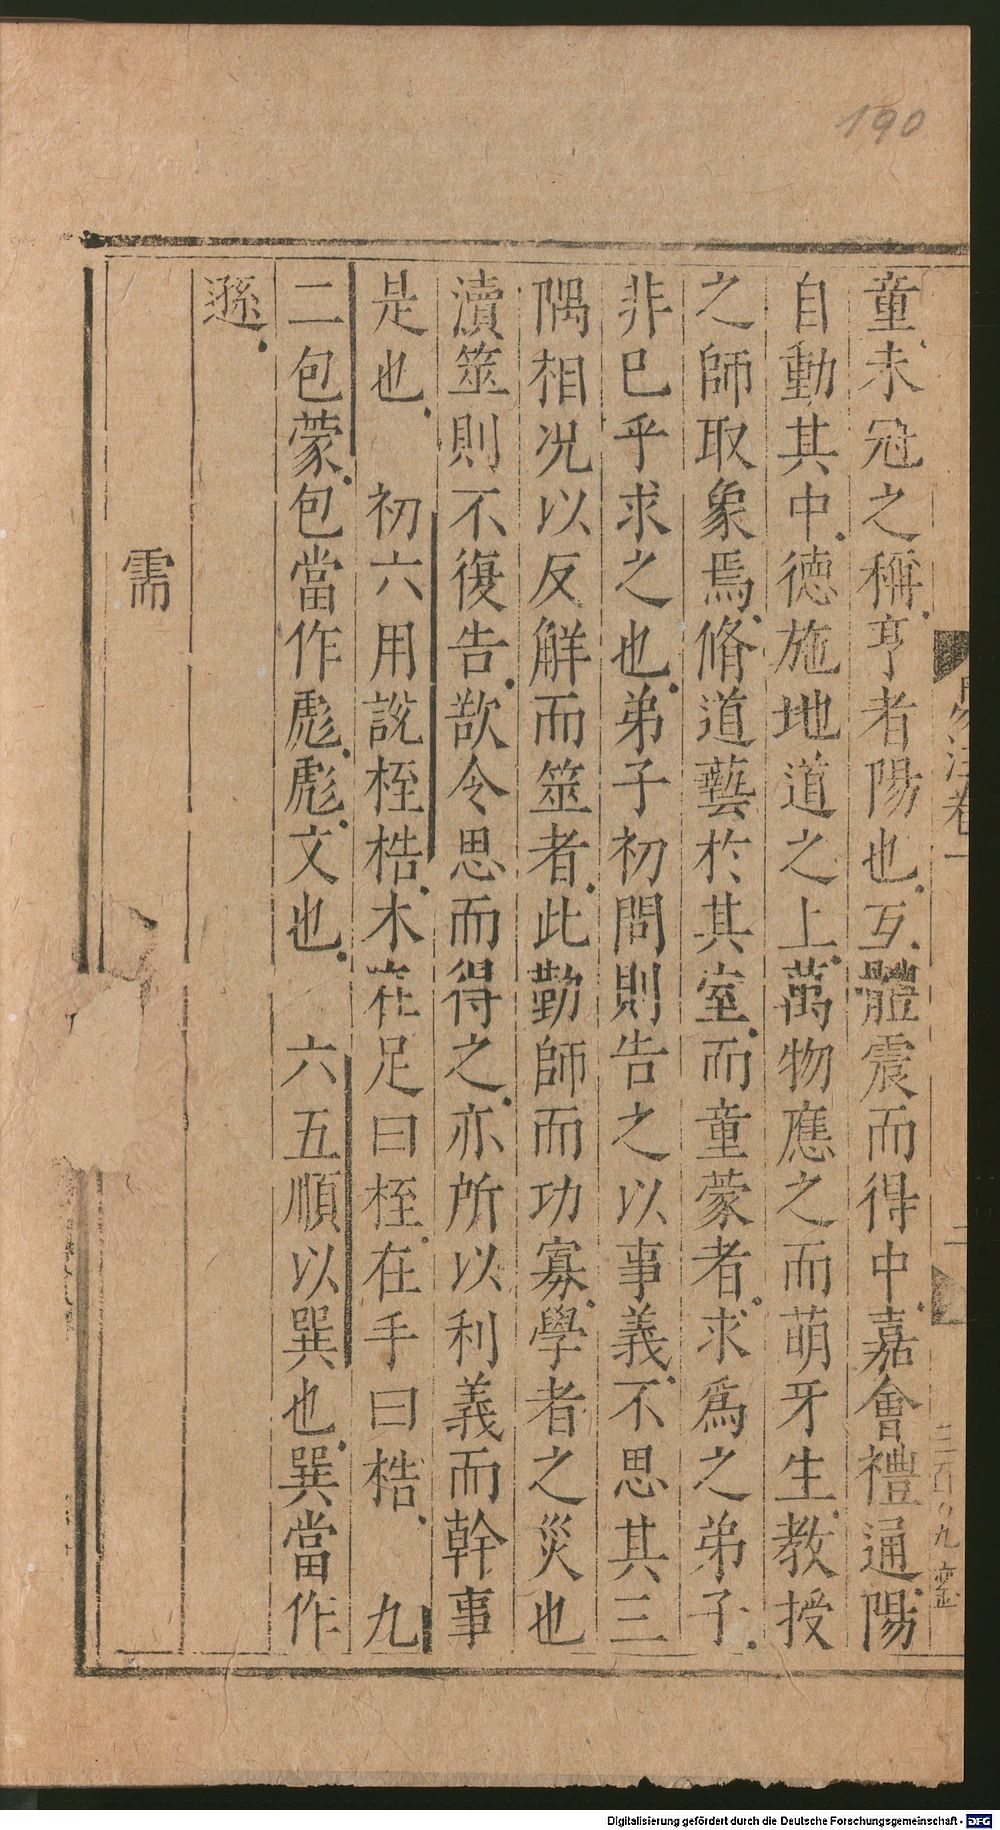 190
童未冠之稱亨者陽也互體震而得中嘉會禮通陽
自動其中德施地道之上萬物應之而萌牙生教授
之師取象焉脩道藝於其室而童蒙者求爲之弟子
非巳乎求之也弟子初問則告之以事義不思其三
隅相况以反解而筮者此勤師而功寡學者之災也
瀆筮則不復告欲令思而得之亦所以利義而幹事
是也　初六用說桎梏木在足曰桎在手曰梏　九
二包蒙包當作彪彪文也　六五順以巽也巽當作
遜
需
Digitalisierung gefördert durch die Deutsche Forschungsgemeinschaft - DFG